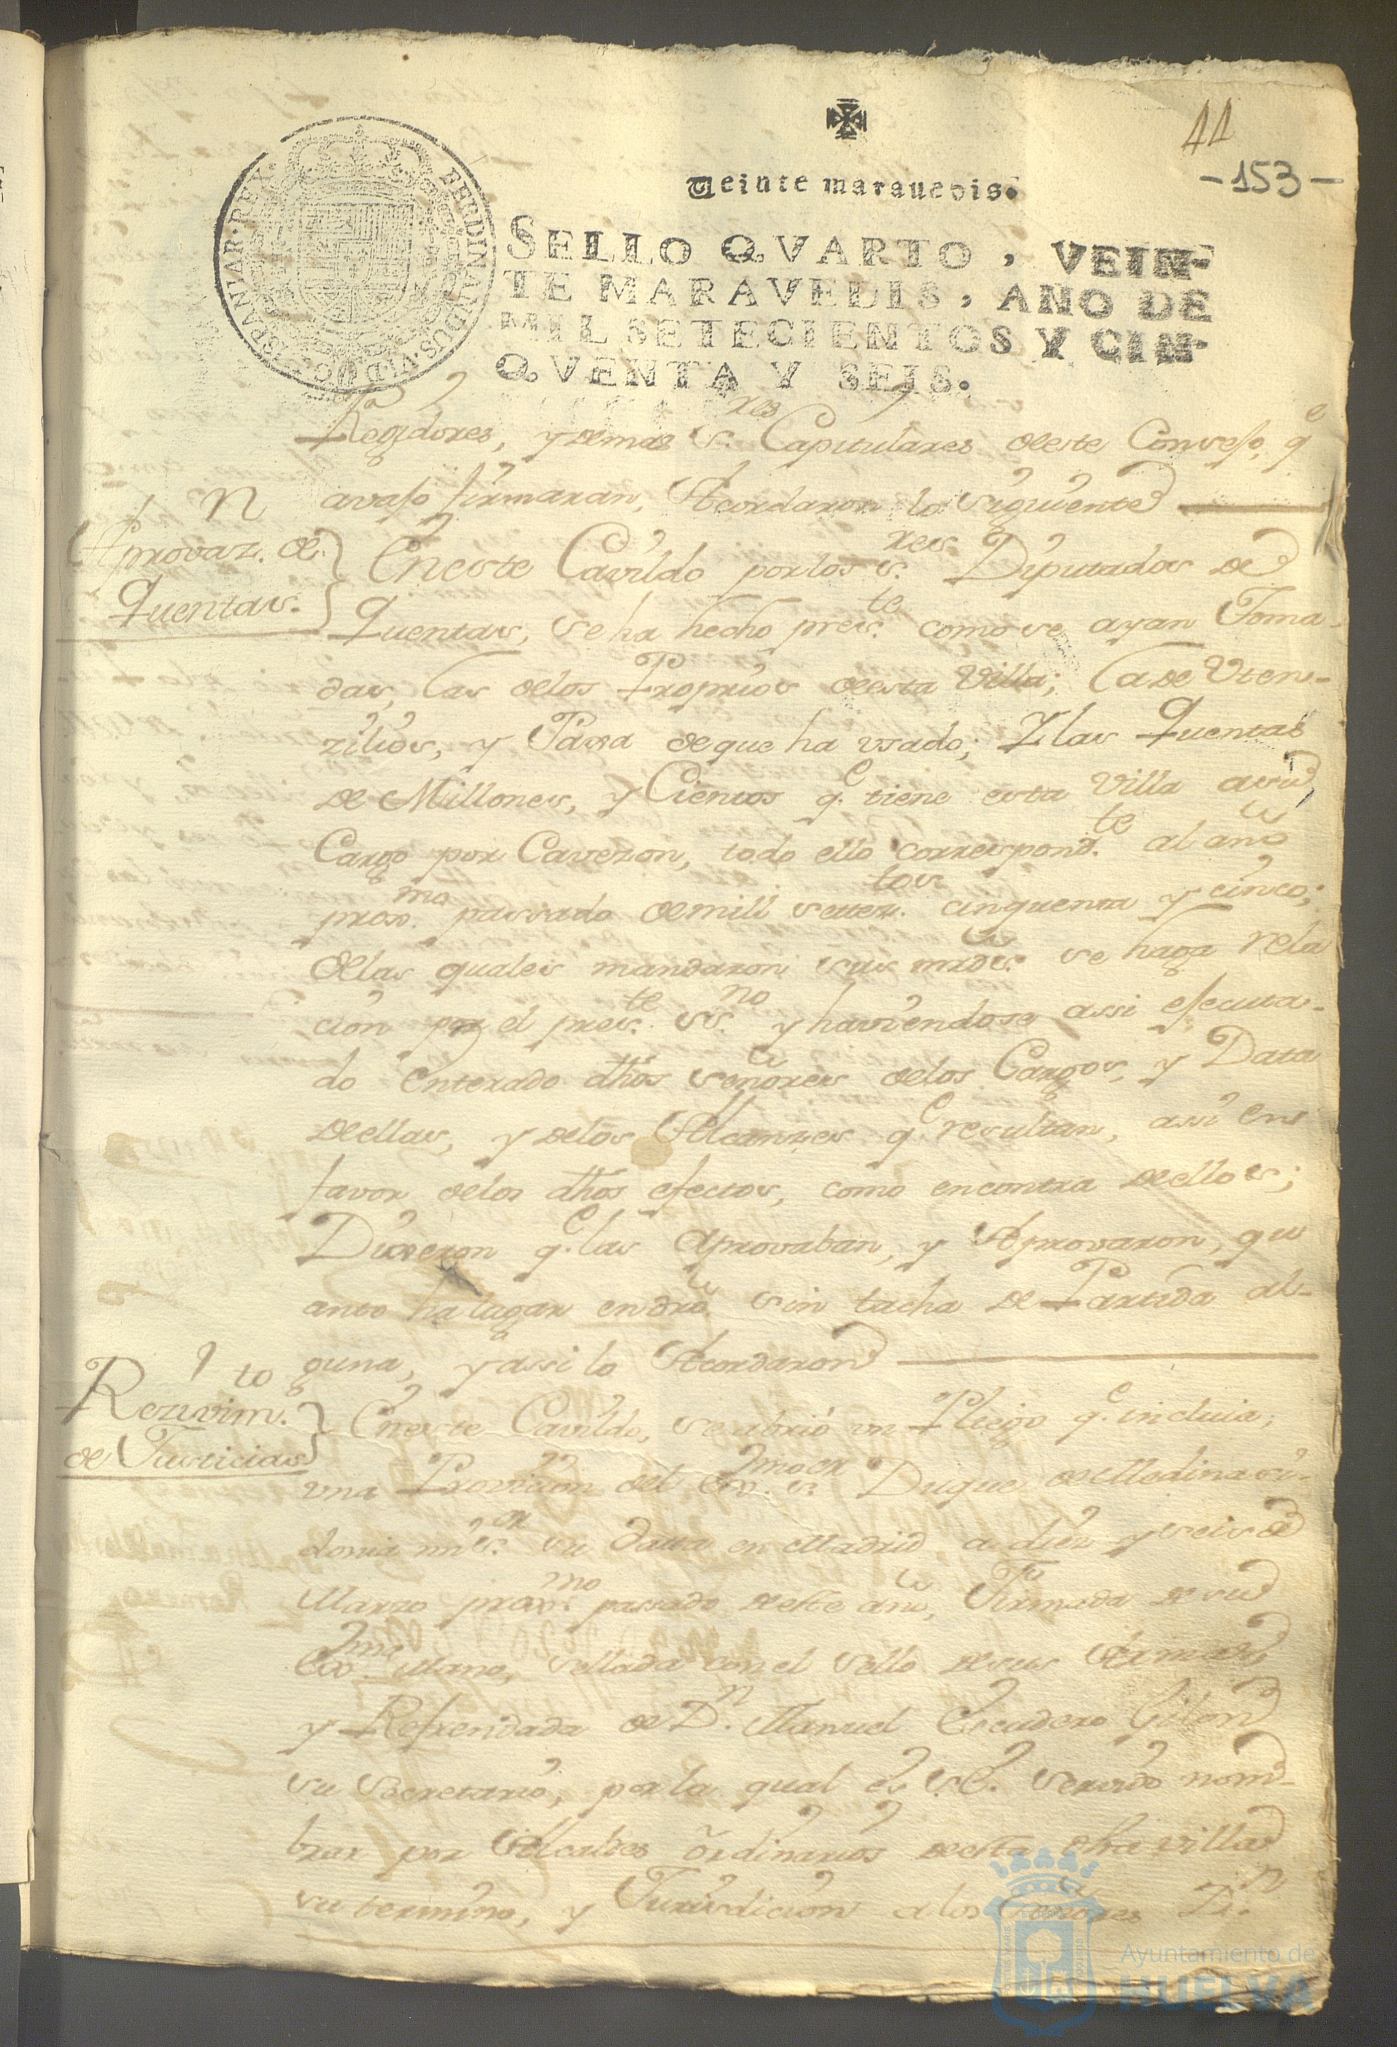 44
-153-
Veinte marauedis.
SELLO QVARTO, VEIN-
TE MARAVEDIS, AÑO DE
MIL SETECIENTOS Y CIN-
QVENTA Y SEIS.
FERDINANDUS·VI·D·G· HISPANIAR·REX·
Regidores, y demas S.res Capitulares deeste Consejo, q.e
avajo firmaran, Acordaron lo siguiente
Aprovaz.n de
Quentas.
Eneste Cavildo por los S.res Diputados de
Quentas, se ha hecho pres.te como se ayan Toma-
das, las delos Proprios deesta Villa; la de Vten-
zilios, y Paxa de que ha vsado; Y las Quentas
de Millones, y Cientos q.e tiene esta Villa asu
Cargo por Cavezon, todo ello correspond.te al año
prox.mo passado demill settez.tos cinquenta y cinco;
delas quales mandaron sus mrds. se haga rela
cion por el pres.te ss.no y haviendose assi ejecuta-
do enterado dhos señores delos Cargos, y Data
deellas, y delos Alcanzes q.e resultan, assi en
favor delos dhos efectos, como encontra deellos;
Dixeron q.e las Aprovaban, y Aprovaron, qu
anto ha lugar endro sin tacha de Partida al-
guna, y assi lo Acordaron
Rezivim.to
de Justicias
Eneste Cavildo, se abrio vn Pliego q.e incluia,
vna Provicion del Ex.mo S.or Duque de Medinasi-
donia mi S.or su data en Madrid a diez y seis de
Marzo prox.mo passado deeste año, Firmada de su
Ex.ma Mano, sellada con el Sello de sus Armas
y Refrendada de D.n Manuel Escudero Gilon
su Secretario, por la qual es S.E. servido nom-
brar por Alcaldes ordinarios deesta dha villa
su termino, y Jurisdicion a los Señores D.n
Ayuntamiento de
HUELVA